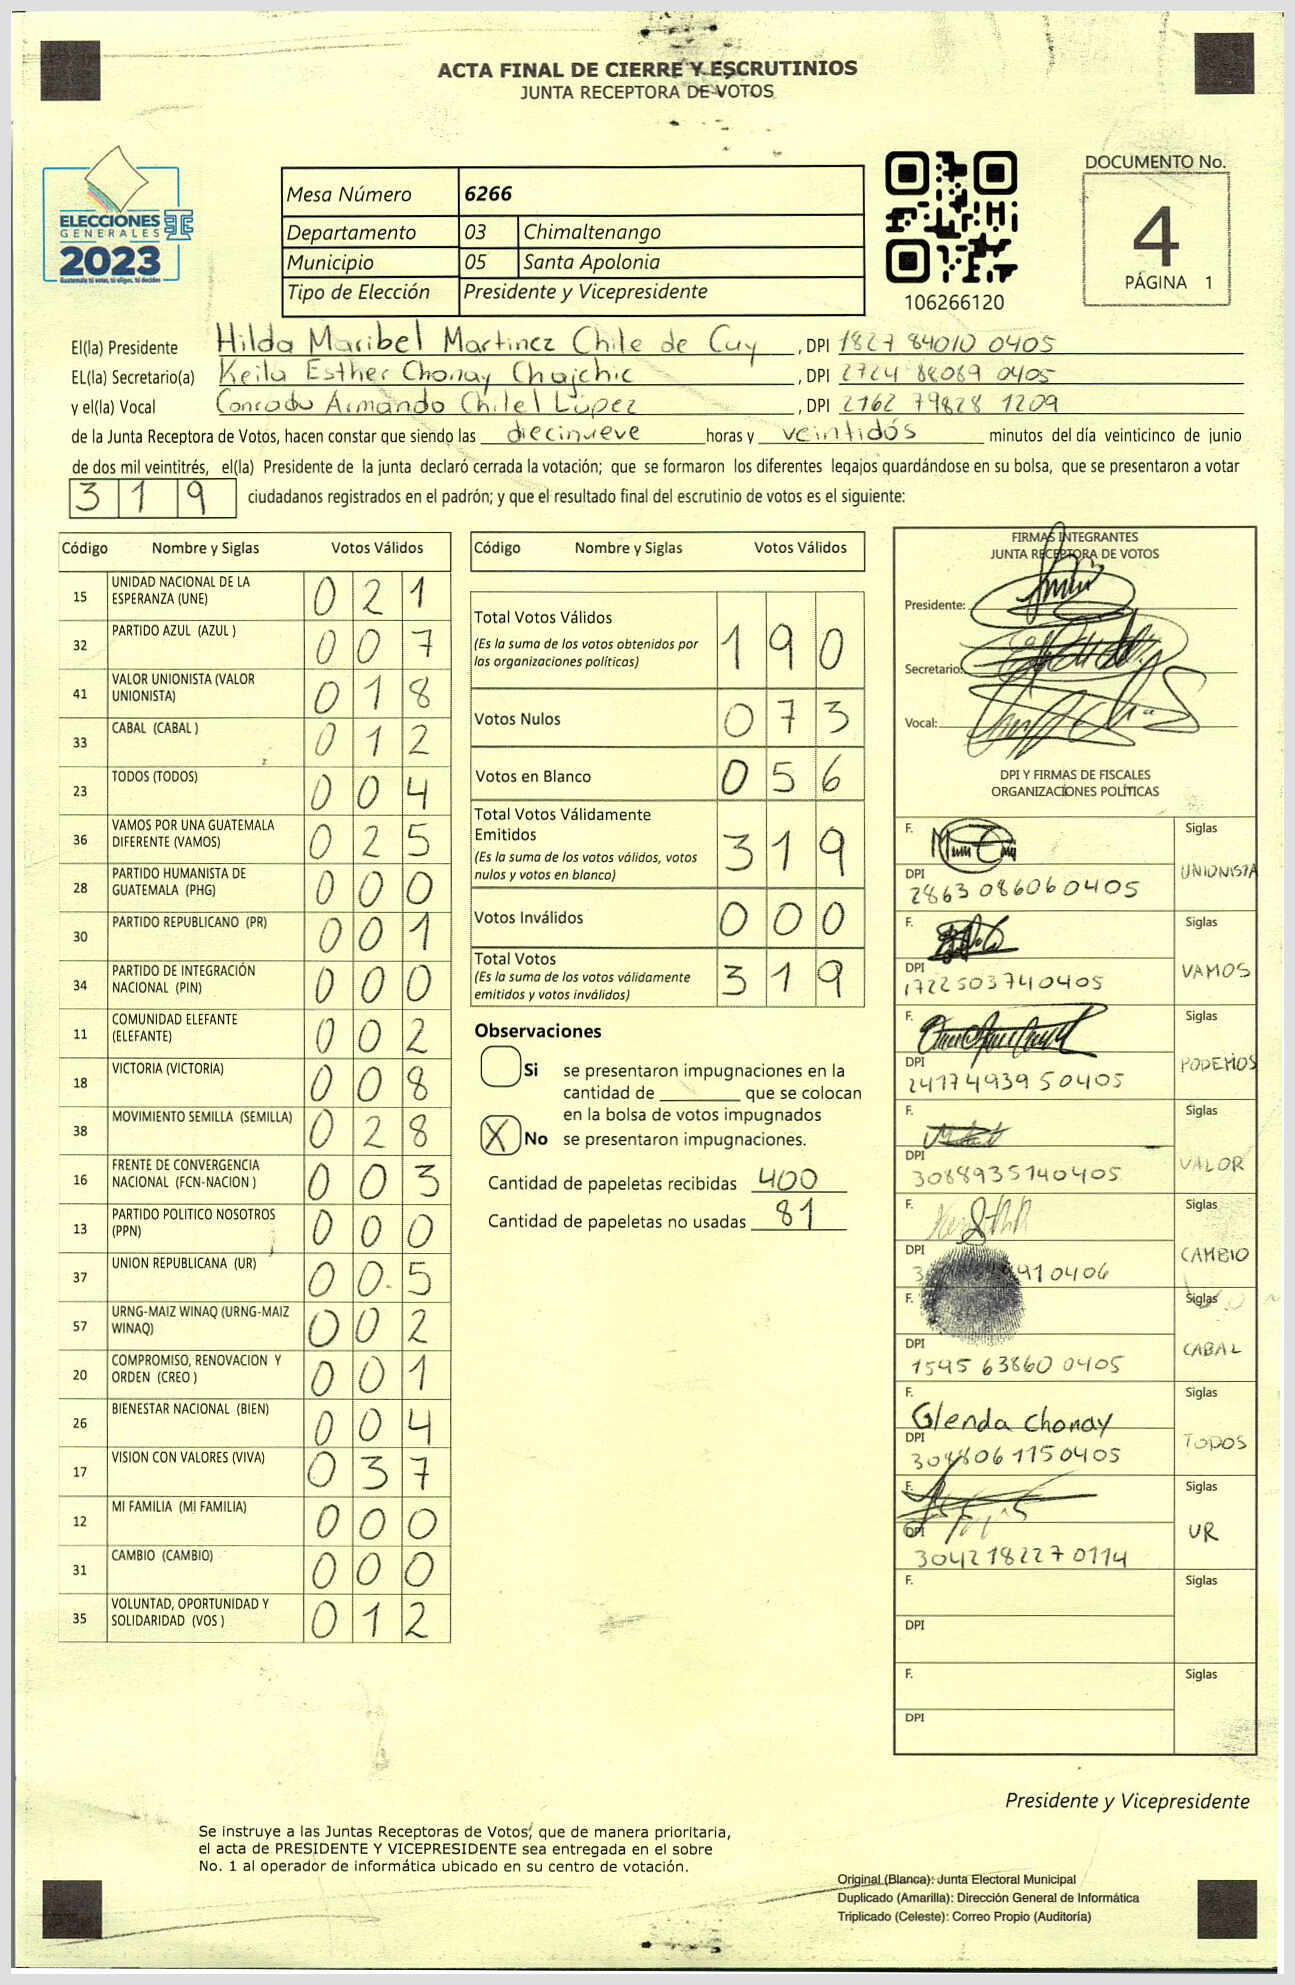 ACTA FINAL DE CIERRE Y ESCRUTINIOS
JUNTA RECEPTORA DE VOTOS
ELECCIONES
GENERALES
2023
Guatemala tú votas, tú eliges, tú decides
Mesa Número 6266
Departamento 03 Chimaltenango
Municipio 05 Santa Apolonia
Tipo de Elección Presidente y Vicepresidente
106266120
DOCUMENTO No.
4
PÁGINA 1
El(la) Presidente Hilda Maribel Martinez Chile de Cuy, DPI 1827 84010 0405
EL(la) Secretario(a) Keila Esther Chonay Chajchic, DPI 2724 88089 0405
y el(la) Vocal Conrado Armando Chilel López, DPI 2162 79828 1209
de la Junta Receptora de Votos, hacen constar que siendo las diecinueve horas y veintidós minutos del día veinticinco de junio
de dos mil veintitrés, el(la) Presidente de la junta declaró cerrada la votación; que se formaron los diferentes legajos guardándose en su bolsa, que se presentaron a votar
319 ciudadanos registrados en el padrón; y que el resultado final del escrutinio de votos es el siguiente:
Código Nombre y Siglas Votos Válidos
15 UNIDAD NACIONAL DE LA ESPERANZA (UNE) 021
32 PARTIDO AZUL (AZUL ) 007
41 VALOR UNIONISTA (VALOR UNIONISTA) 018
33 CABAL (CABAL ) 012
23 TODOS (TODOS) 004
36 VAMOS POR UNA GUATEMALA DIFERENTE (VAMOS) 025
28 PARTIDO HUMANISTA DE GUATEMALA (PHG) 000
30 PARTIDO REPUBLICANO (PR) 001
34 PARTIDO DE INTEGRACIÓN NACIONAL (PIN) 000
11 COMUNIDAD ELEFANTE (ELEFANTE) 002
18 VICTORIA (VICTORIA) 008
38 MOVIMIENTO SEMILLA (SEMILLA) 028
16 FRENTE DE CONVERGENCIA NACIONAL (FCN-NACION ) 003
13 PARTIDO POLITICO NOSOTROS (PPN) 000
37 UNION REPUBLICANA (UR) 005
57 URNG-MAIZ WINAQ (URNG-MAIZ WINAQ) 002
20 COMPROMISO, RENOVACION Y ORDEN (CREO ) 001
26 BIENESTAR NACIONAL (BIEN) 004
17 VISION CON VALORES (VIVA) 037
12 MI FAMILIA (MI FAMILIA) 000
31 CAMBIO (CAMBIO) 000
35 VOLUNTAD, OPORTUNIDAD Y SOLIDARIDAD (VOS ) 012
Código Nombre y Siglas Votos Válidos
Total Votos Válidos 190
(Es la suma de los votos obtenidos por
las organizaciones políticas)
Votos Nulos 073
Votos en Blanco 056
Total Votos Válidamente
Emitidos 319
(Es la suma de los votos válidos, votos
nulos y votos en blanco)
Votos Inválidos 000
Total Votos 319
(Es la suma de los votos válidamente
emitidos y votos inválidos)
Observaciones
Si se presentaron impugnaciones en la
cantidad de ________ que se colocan
en la bolsa de votos impugnados
X No se presentaron impugnaciones.
Cantidad de papeletas recibidas 400
Cantidad de papeletas no usadas 81
FIRMAS INTEGRANTES
JUNTA RECEPTORA DE VOTOS
Presidente:
Secretario:
Vocal:
DPI Y FIRMAS DE FISCALES
ORGANIZACIONES POLÍTICAS
F. Siglas
UNIONISTA
DPI 2863 08606 0405
F. Siglas
VAMOS
DPI 1722503740405
F. Siglas
PODEMOS
DPI 2417493950405
F. Siglas
VALOR
DPI 3088935140405
F. Siglas
CAMBIO
DPI 910406
F. Siglas
CABAL
DPI 1595 63860 0405
F. Glenda Chonay Siglas
TODOS
DPI 3088061150405
F. Siglas
UR
DPI 3042182270114
F. Siglas
DPI
F. Siglas
DPI
Presidente y Vicepresidente
Se instruye a las Juntas Receptoras de Votos, que de manera prioritaria,
el acta de PRESIDENTE Y VICEPRESIDENTE sea entregada en el sobre
No. 1 al operador de informática ubicado en su centro de votación.
Original (Blanca): Junta Electoral Municipal
Duplicado (Amarilla): Dirección General de Informática
Triplicado (Celeste): Correo Propio (Auditoría)